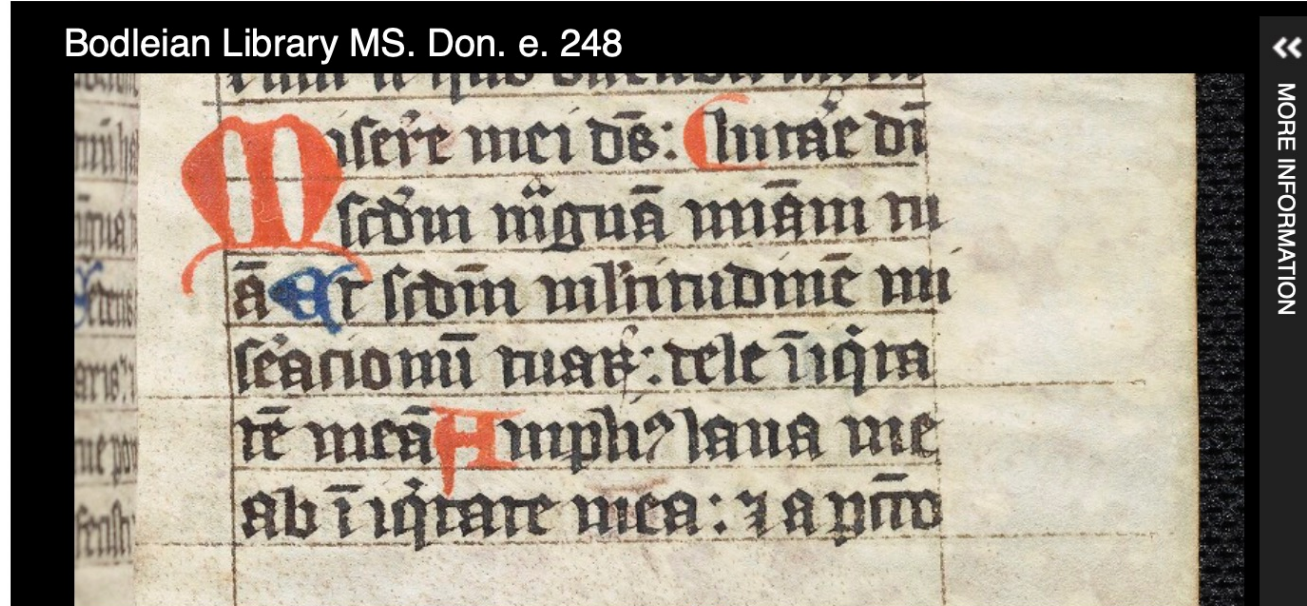 Bodleian Library MS. Don. e. 248
MORE INFORMATION
Misere mei ds̄:
scd̄m mgnā miām tu
ā Et scdm̄ mltitudinē mi
seacionū tuaꝝ: dele īiqta
tē meā Amplꝰ laua me
ab īiqtate mea: ⁊ a pccto